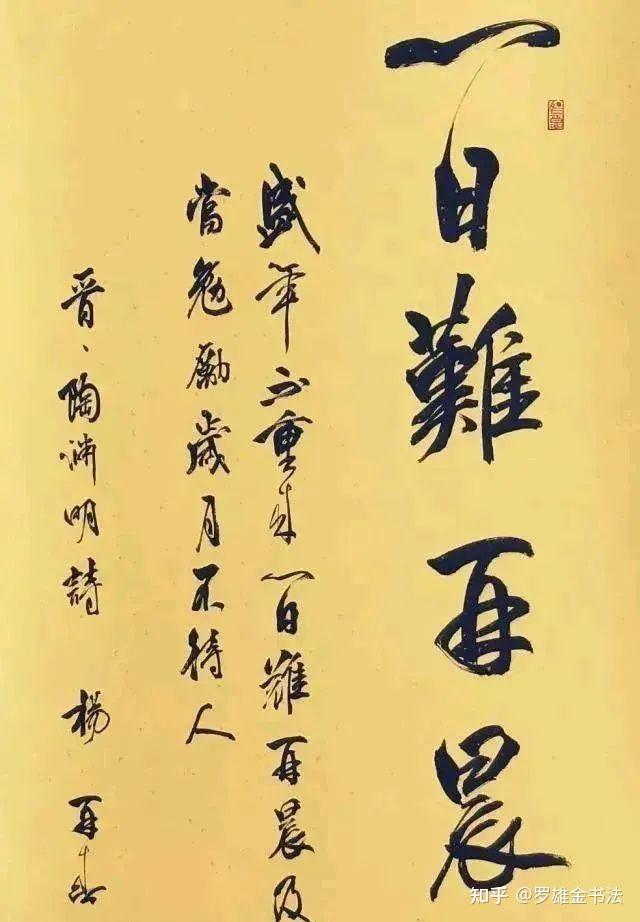 一日難再晨
盛年不重来一日難再晨及
當勉勵歲月不待人
晋、陶渊明詩 楊再春
知乎 @罗雄金书法